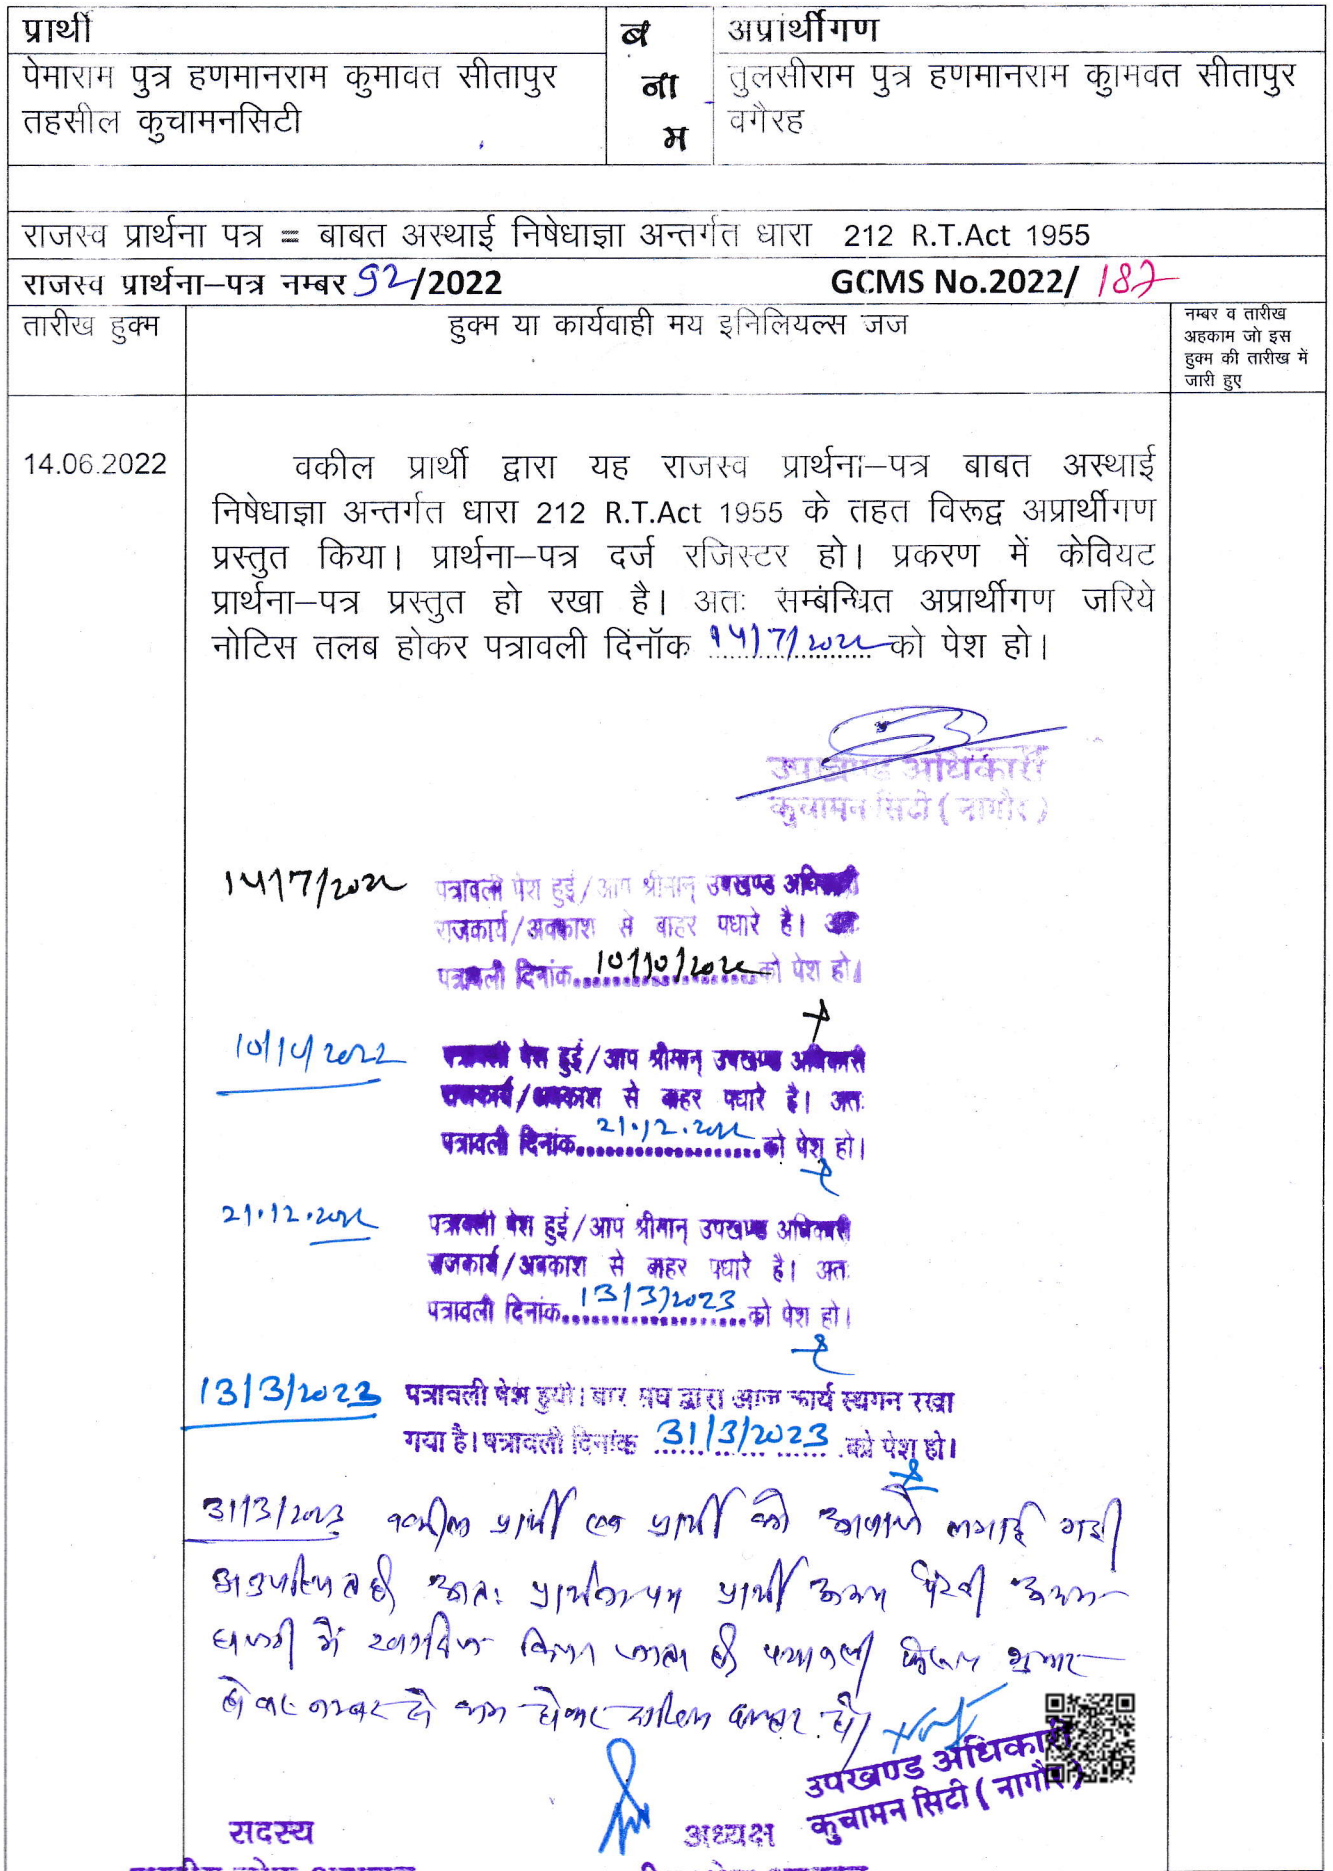 प्रार्थी
ब
ना
म
अप्रार्थीगण
पेमाराम पुत्र हणमानराम कुमावत सीतापुर
तहसील कुचामनसिटी
तुलसीराम पुत्र हणमानराम कुामवत सीतापुर
वगैरह
राजस्व प्रार्थना पत्र = बाबत अस्थाई निषेधाज्ञा अन्तर्गत धारा 212 R.T.Act 1955
राजस्व प्रार्थना–पत्र नम्बर 92/2022 GCMS No.2022/ 187
तारीख हुक्म
हुक्म या कार्यवाही मय इनिलियल्स जज
नम्बर व तारीख
अहकाम जो इस
हुक्म की तारीख में
जारी हुए
14.06.2022
वकील प्रार्थी द्वारा यह राजस्व प्रार्थना–पत्र बाबत अस्थाई
निषेधाज्ञा अन्तर्गत धारा 212 R.T.Act 1955 के तहत विरूद्व अप्रार्थीगण
प्रस्तुत किया। प्रार्थना–पत्र दर्ज रजिस्टर हो। प्रकरण में केवियट
प्रार्थना–पत्र प्रस्तुत हो रखा है। अतः सम्बंन्धित अप्रार्थीगण जरिये
नोटिस तलब होकर पत्रावली दिनॉक 14/7/2022 को पेश हो।
उपखण्ड अधिकारी
कुचामन सिटी ( नागौर )
14/7/2022 पत्रावली पेश हुई/आप श्रीमान् उपखण्ड अधिकारी
राजकार्य/अवकाश से बाहर पधारे है। अतः
पत्रावली दिनांक 10/10/2022 को पेश हो।
10/10/2022 पत्रावली पेश हुई/आप श्रीमान् उपखण्ड अधिकारी
राजकार्य/अवकाश से बाहर पधारे है। अतः
पत्रावली दिनांक 21.12.2022 को पेश हो।
21.12.2022 पत्रावली पेश हुई/आप श्रीमान् उपखण्ड अधिकारी
राजकार्य/अवकाश से बाहर पधारे है। अतः
पत्रावली दिनांक 13/3/2023 को पेश हो।
13/3/2023 पत्रावली पेश हुयी। बार संघ द्वारा आज कार्य स्थगन रखा
गया है। पत्रावली दिनांक 31/3/2023 को पेश हो।
31/3/2023 वकील प्रार्थी एवं प्रार्थी को आवाजे लगाई गई
अनुपस्थित है। अतः प्रार्थना पत्र प्रार्थी अदम पैरवी अदम
हाजरी में खारिज किया जाता है। पत्रावली फैसल शुमार
होकर नम्बर से कम होकर दाखिल दफ्तर हो।
उपखण्ड अधिकारी
कुचामन सिटी ( नागौर )
सदस्य
अध्यक्ष